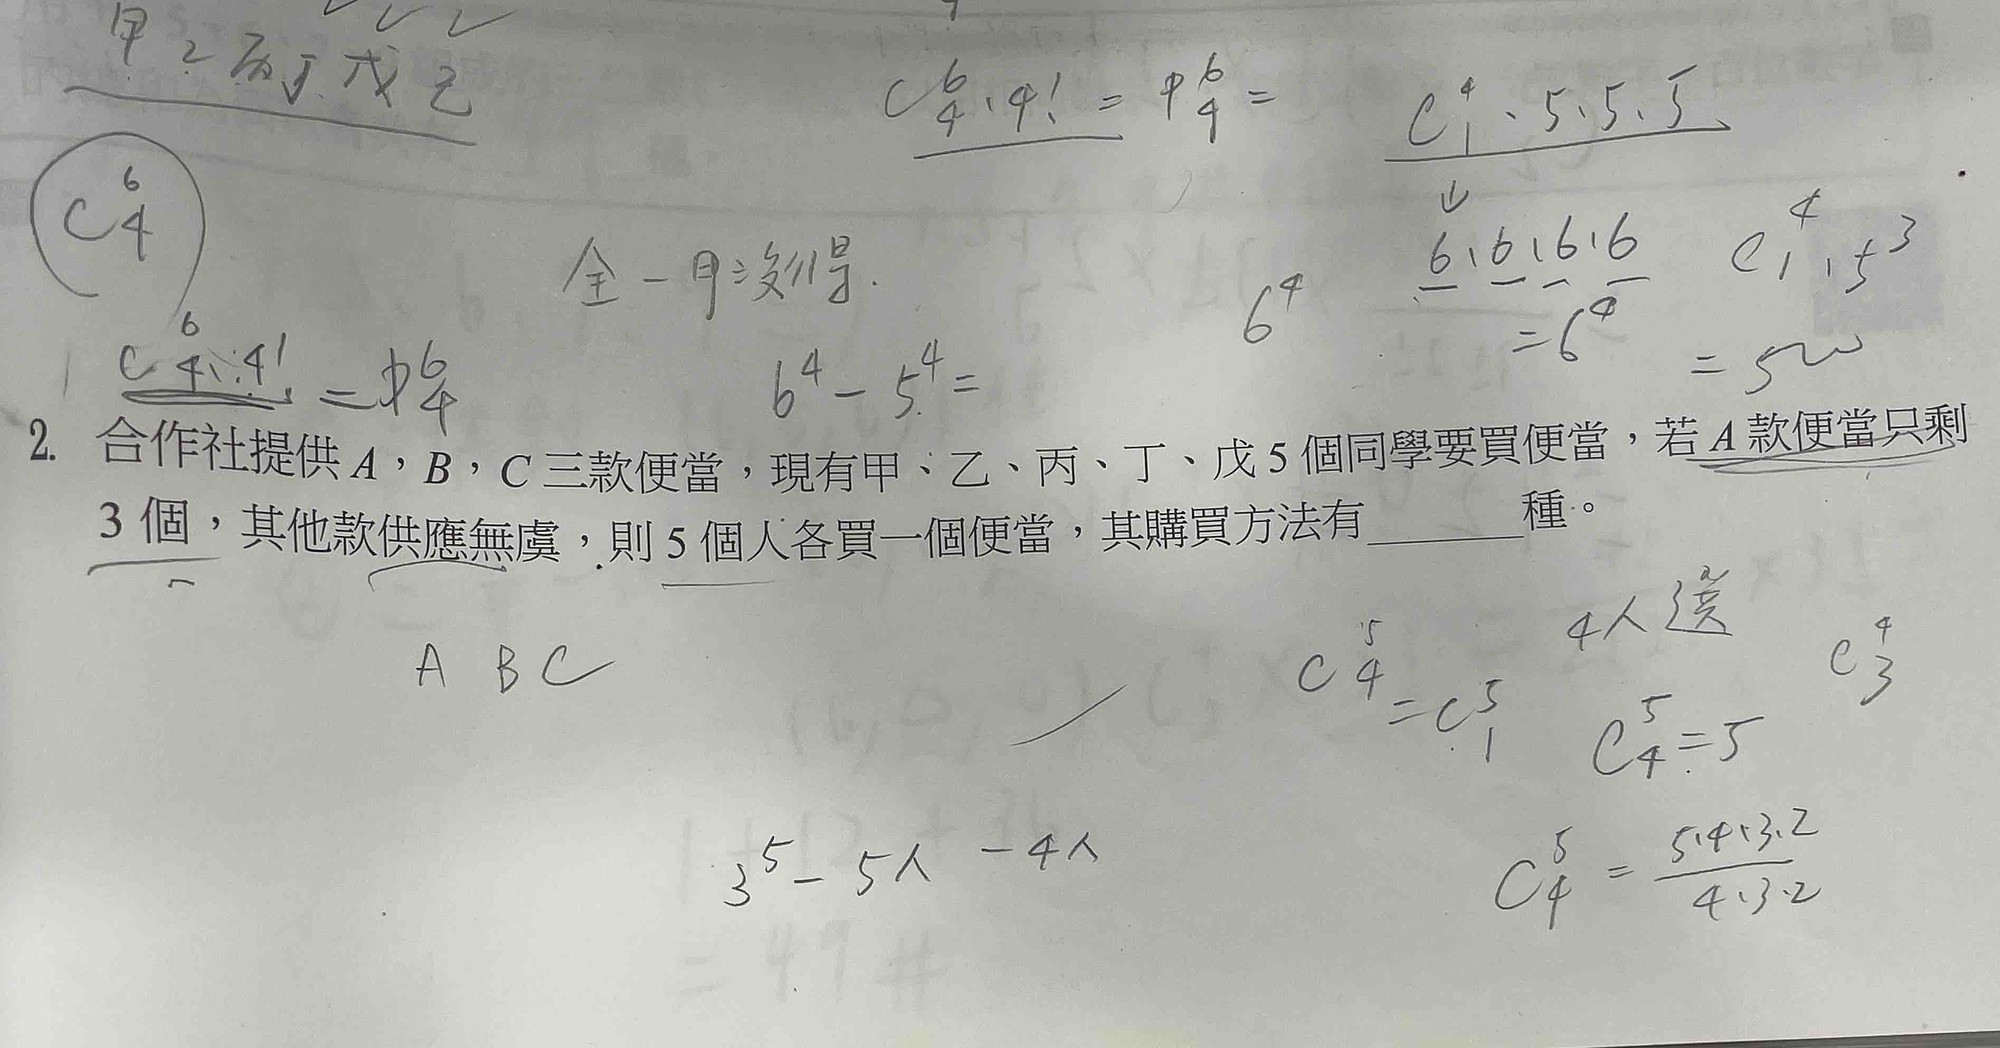 甲乙丙丁戊己
C⁶₄·4! = P⁶₄ =
C⁴₁·5·5·5
C⁶₄
全－甲沒得.
6⁴
6·6·6·6
= 6⁴
C⁴₁·5³
= 500
C⁶₄·4! = P⁶₄
6⁴ - 5⁴ =
2. 合作社提供 A，B，C 三款便當，現有甲、乙、丙、丁、戊 5 個同學要買便當，若 A 款便當只剩
3 個，其他款供應無虞，則 5 個人各買一個便當，其購買方法有______種。
A B C
C⁵₄
= C⁵₁
4人選
C⁵₄ = 5
C⁴₃
3⁵ - 5人 - 4人
C⁵₄ = 5·4·3·2
4·3·2